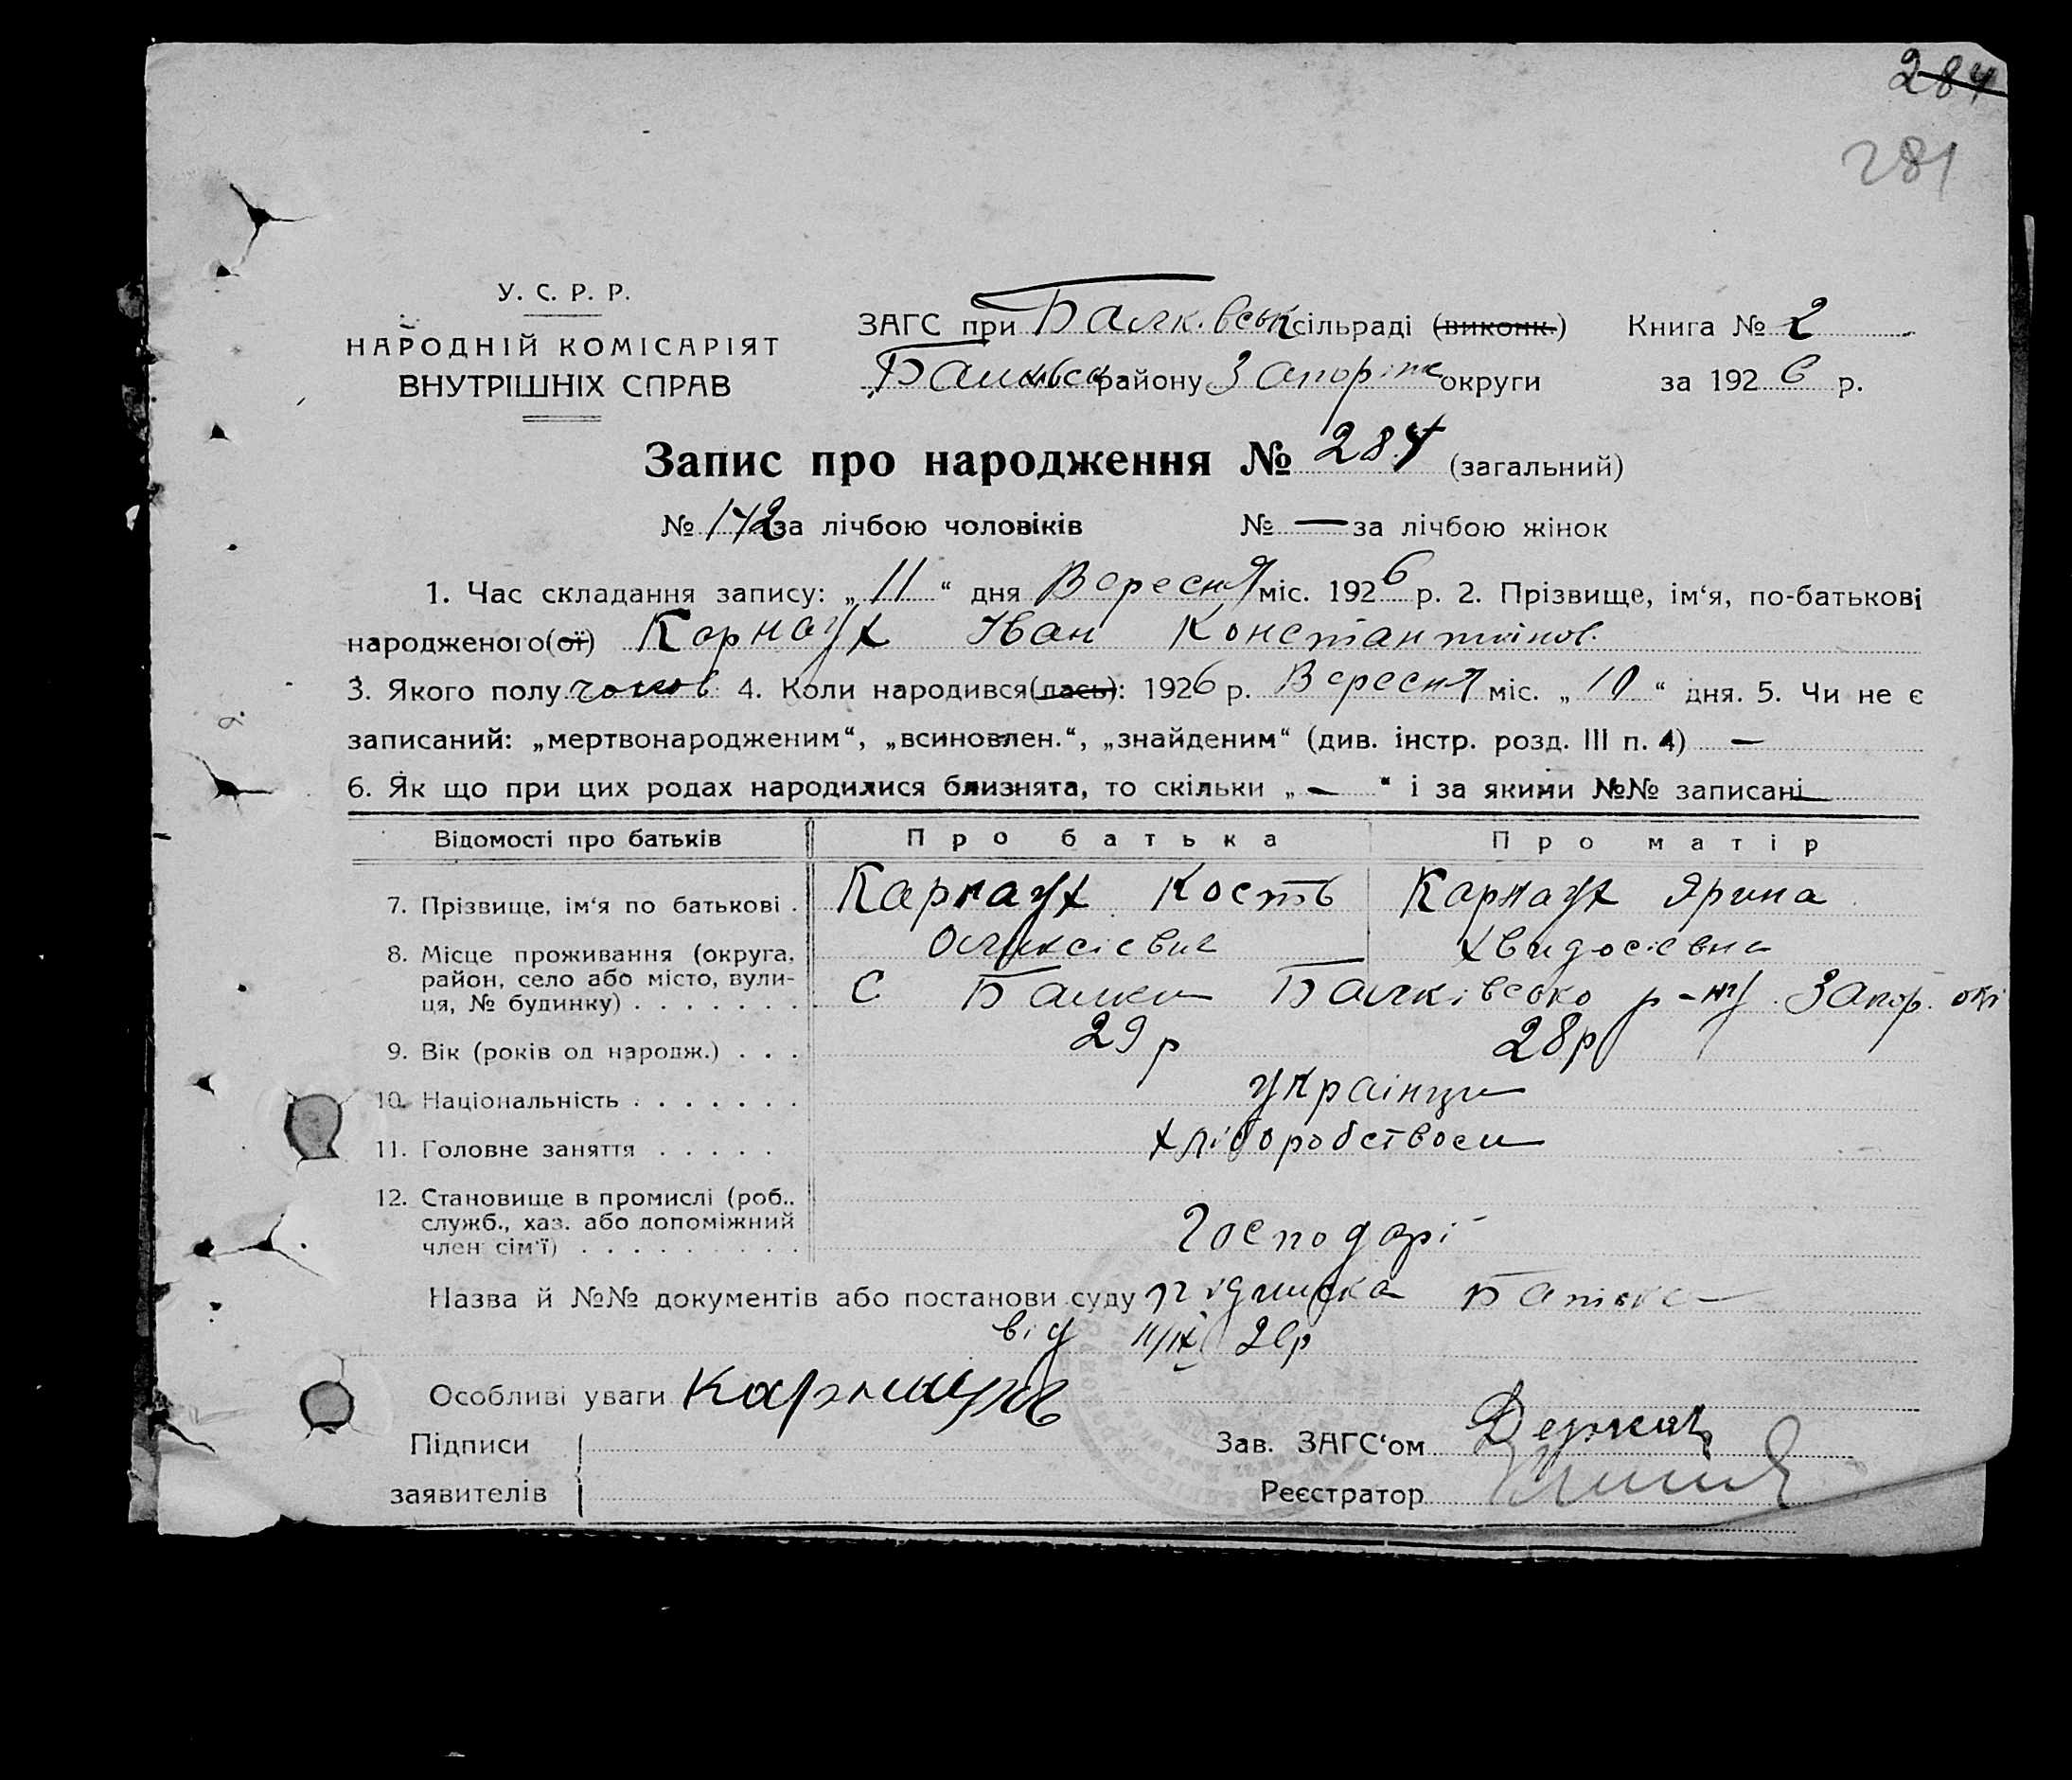 284
281
У. С. Р. Р.
НАРОДНІЙ КОМІСАРІЯТ
ВНУТРІШНІХ СПРАВ
ЗАГС при Балк.вськ сільраді (виконк.) Книга № 2
району Запоріж округи за 1926 р.
Запис про народження № 284 (загальний)
№ 142 за лічбою чоловіків № — за лічбою жінок
1. Час складання запису: „ 11 “ дня Вересня міс. 1926 р. 2. Прізвище, ім‘я, по-батькові
народженого(ої) Карнаух Іван Константинов.
3. Якого полу чолов. 4. Коли народився(лась): 1926 р. Вересня міс. „ 10 “ дня. 5. Чи не є
записаний: „мертвонародженим“, „всиновлен.“, „знайденим“ (див. інстр. розд. III п. 4) —
6. Як що при цих родах народилися близнята, то скільки „ — “ і за якими №№ записані —
Відомості про батьків Про батька Про матір
7. Прізвище, ім‘я по батькові . Карнаух Кость Карнаух Ярина
Олексієвич Хвидосієвна
8. Місце проживання (округа,
район, село або місто, вули-
ця, № будинку) . . . . . . . С Балки Балківсько р-ну Запор. окр
9. Вік (років од народж.) . . . 29 р 28 р
10. Національність . . . . . . . українци
11. Головне заняття . . . . . хліборобством
12. Становище в промислі (роб.,
служб., хаз. або допоміжний
член сім‘ї) . . . . . . . . . Господарі
Назва й №№ документів або постанови суду підписка Батька
від 11/IX 26р
Особливі уваги
Підписи
заявителів
Зав. ЗАГС‘ом Деркач
Реєстратор